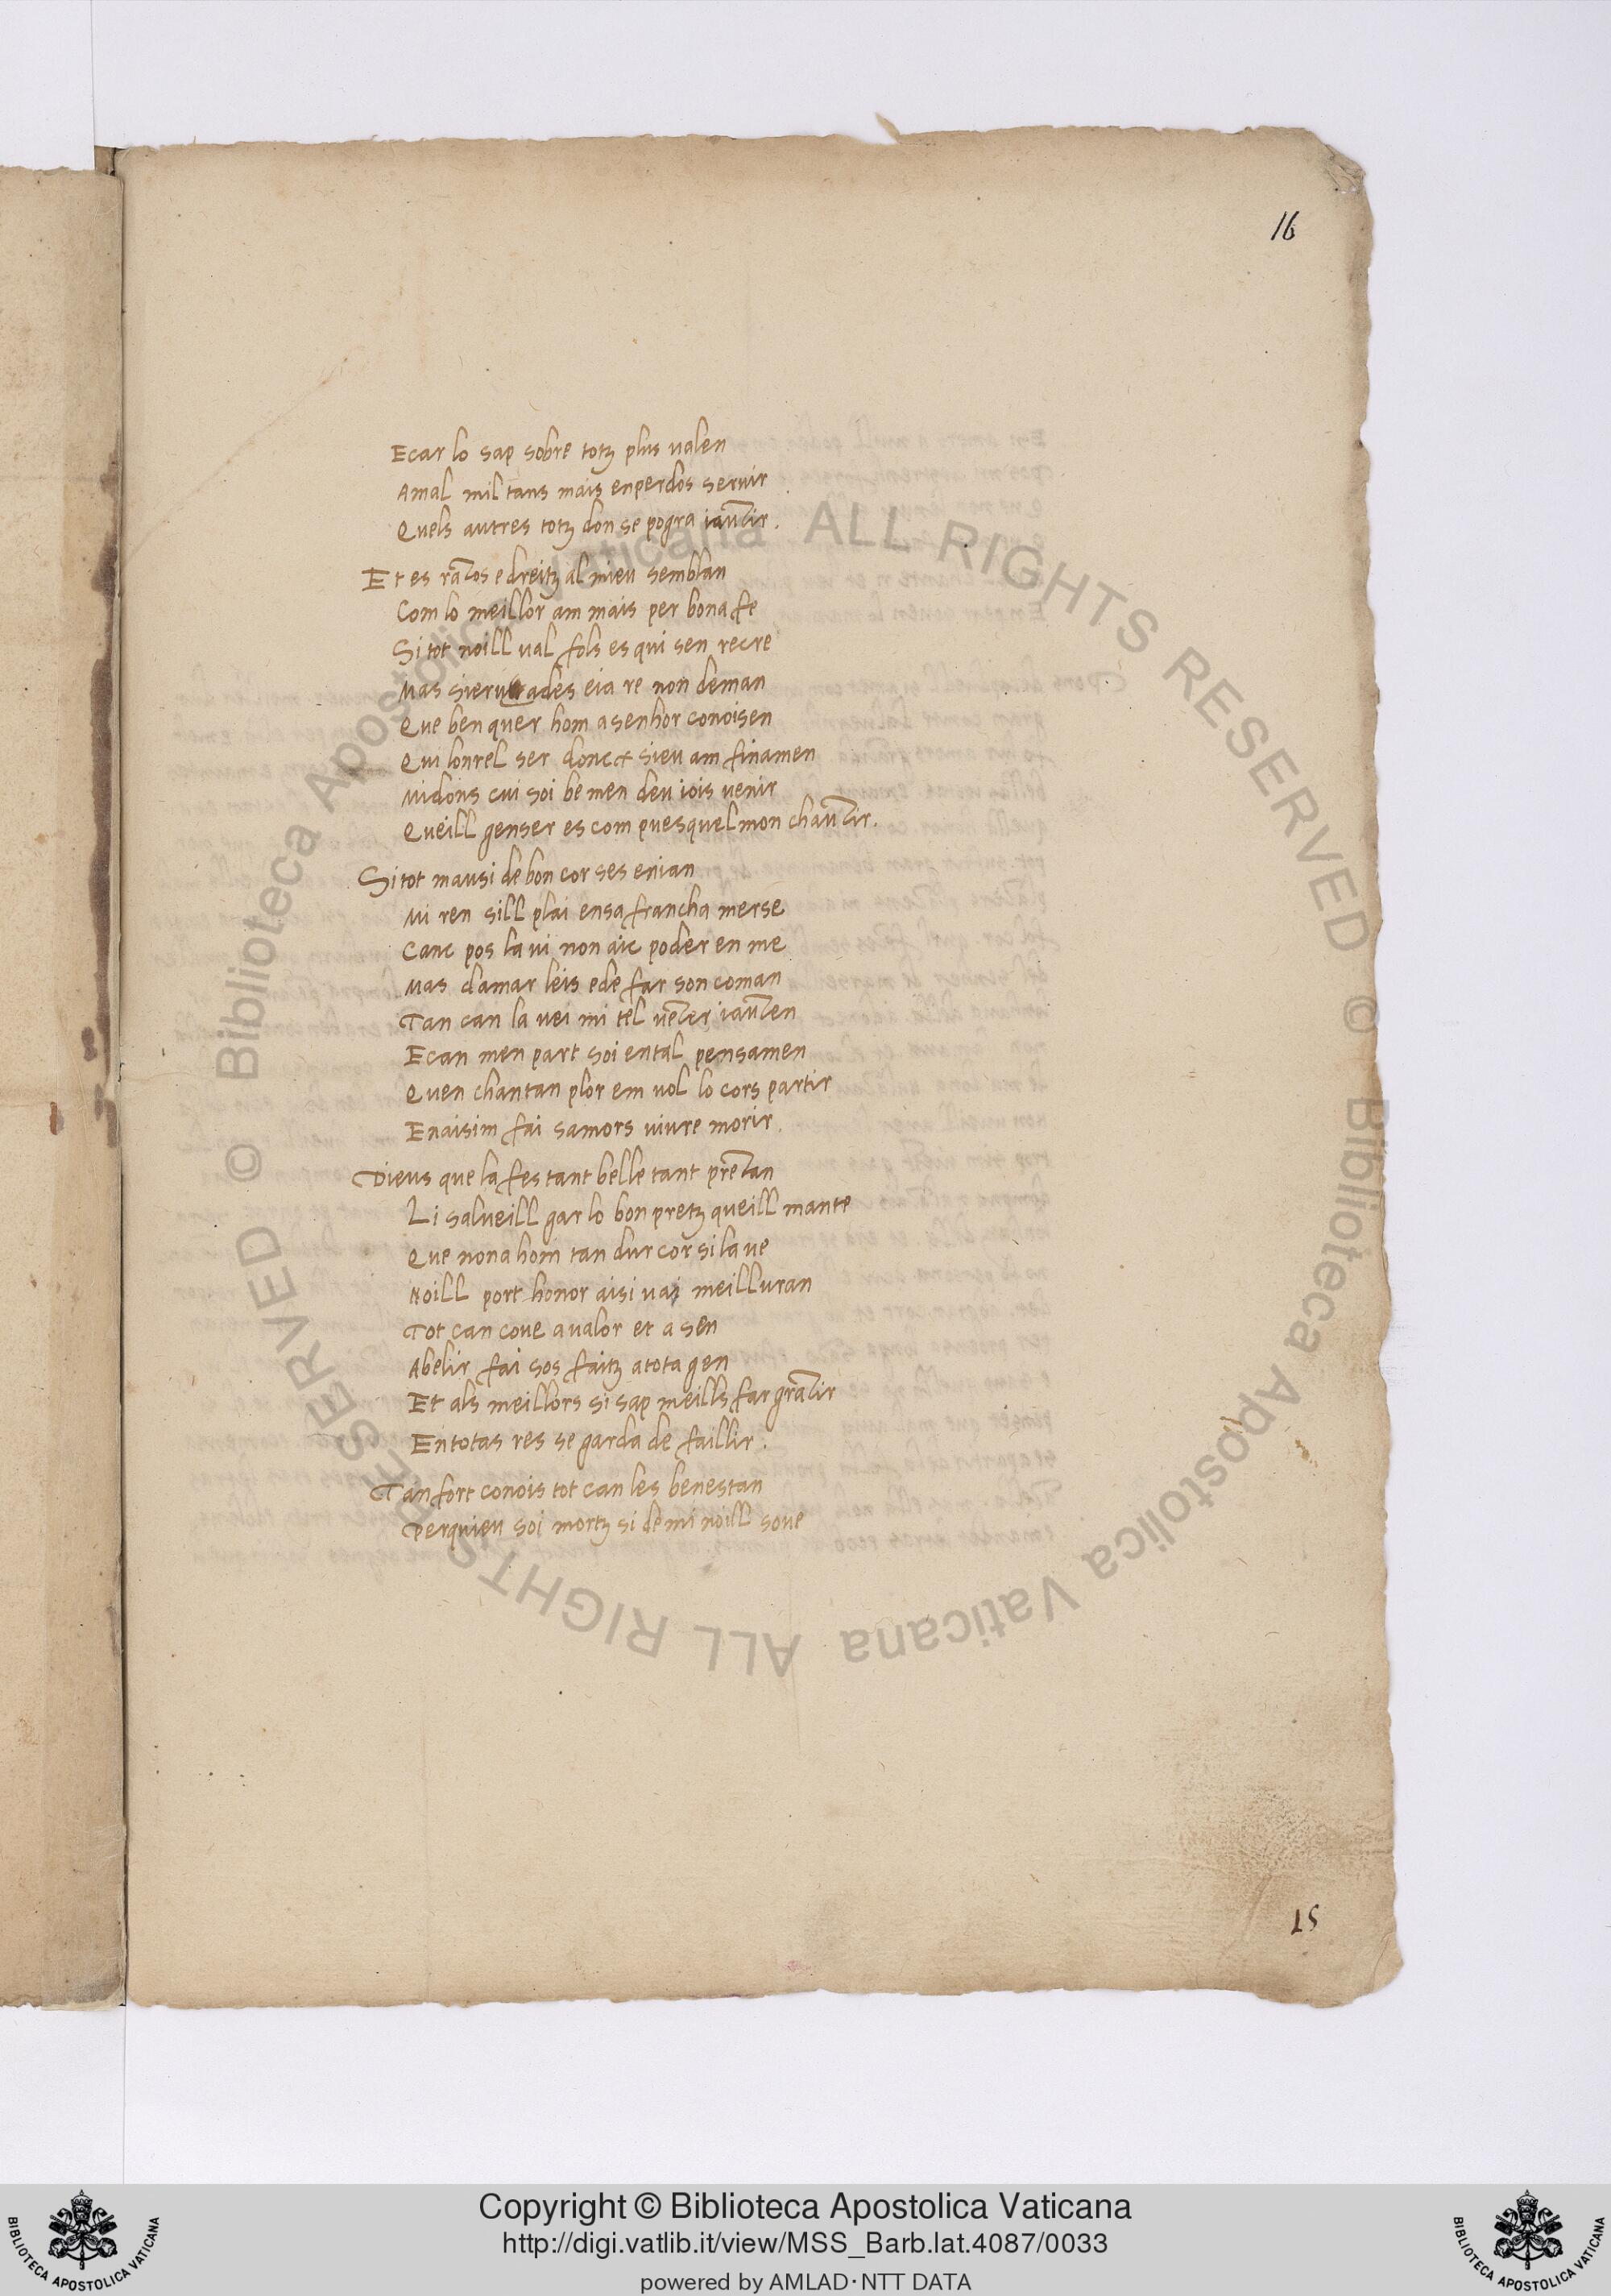 16
Ecar lo sap sobre totz plus valen
Amal mil tans mais enperdos servir
Quels autres totz don se pogra iauzir.
Et es razos e dreitz al mieu semblan
Com lo meillor am mais per bona fe
Si tot noill val fols es qui sen recre
Mas sierv ades eia re non deman
Que ben quer hom a senhor conoisen
Qui lonrel ser donc sieu am finamen
Midons cui soi be men deu iois venir
Queill genser es com puesquel mon chauzir.
Si tot mausi de bon cor ses enian
Mi ren sill plai ensa francha merse
Canc pos la vi non aic poder en me
Mas damar leis ede far son coman
Tan can la vei mi tel vezer iauzen
Ecan men part soi ental pensamen
Quen chantan plor em vol lo cors partir
Enaisim fai samors vivre morir.
Dieus que la fes tant belle tant prezan
Li salveill gar lo bon pretz queill mante
Que nona hom tan dur cor si la ve
Noill port honor aisi vai meilluran
Tot can cove avalor et a sen
Abelir fai sos faitz atota gen
Et als meillors si sap meills far grazir
En totas res se garda de faillir.
Tan fort conois tot can les benestan
Perquieu soi mortz si de mi noill sove
15
© Biblioteca Apostolica Vaticana ALL RIGHTS RESERVED © Biblioteca Apostolica Vaticana ALL RIGHTS RESERVED
Copyright © Biblioteca Apostolica Vaticana
http://digi.vatlib.it/view/MSS_Barb.lat.4087/0033
powered by AMLAD·NTT DATA
BIBLIOTECA APOSTOLICA VATICANA
BIBLIOTECA APOSTOLICA VATICANA